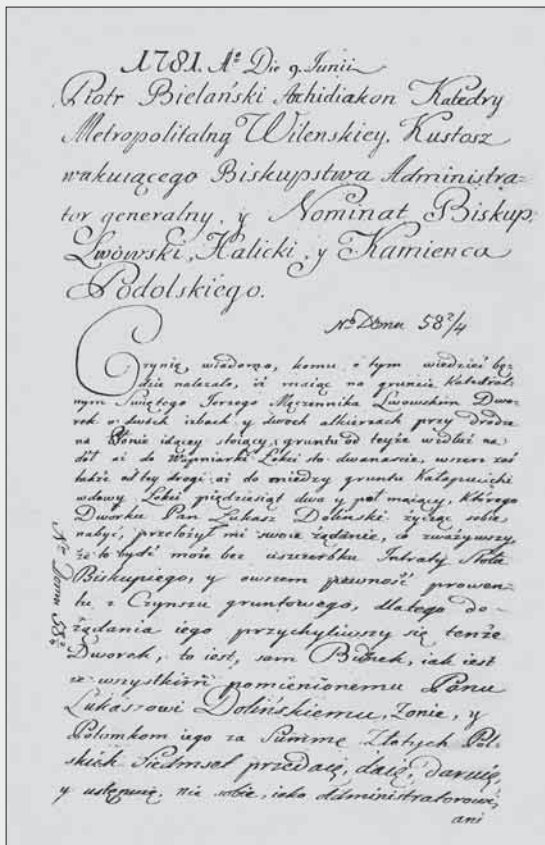 1781. Aº Die 9. Junii
Piotr Bielański Archidiakon Katedry
Metropolitalną Wilenskiey, Kustosz
wakuiącego Biskupstwa Administra-
tor generalny, y Nominat Biskup
Lwowski, Halicki, y Kamienca
Podolskiego.
Nº Domu 58 2/4
Czynię wiadomo, komu o tym wiedzieć bę-
dzie należało, iż maiąc na gruncie Katedral-
nym Swiętego Jerzego Męczennika Lwowskim Dwo-
rek o dwóch izbach y dwoch alkierzach przy drodze
na Błonie idącey stoiący, gruntu od teyże wzdłuż na
dół aż do Łokci sto dwanaście, wszerz zaś
także od tey drogi aż do miedzy gruntu
wdowy Łokci piędziesiąt dwa y poł maiący, którego
Dworku Pan Łukasz Doliński życząc sobie
nabyć, przełożył mi swoie żądanie, co zważywszy,
że to bydź może bez uszczerbku Intraty Stołu
Biskupiego, y owszem pewność prowen-
tu z Czynszu gruntowego, dlatego do
żądania iego przychyliwszy się tenże
Dworek, to iest, sam Budek, iak iest
ze wszystkim pomienionemu Panu
Łukaszowi Dolińskiemu, Zonie, y
Potomkom iego za Summę Złotych Pol-
skich Siedmset przedaię, daię, daruię,
y ustępuię, nie sobie, iako Administratorowi,
ani
Nº Domu 58